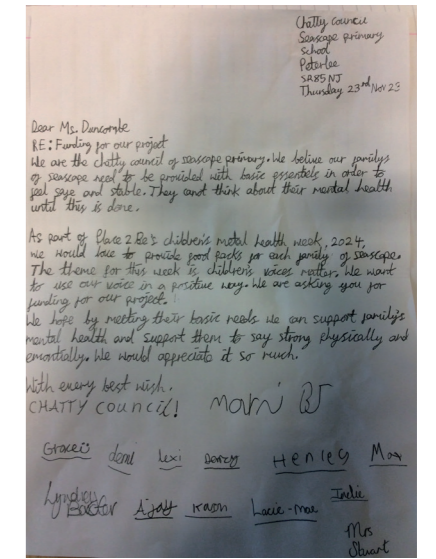 Chatty Council
Seascape primary
School
Peterlee
SR85NJ
Thursday 23rd Nov 23
Dear Ms. Duncombe
RE: Funding for our project
We are the chatty council of seascape primary. We belive our familys
of seascape need to be provided with basic essentels in order to
feel saye and stable. They canot think about their mental health
until this is done.
As part of Place 2 Be's children's metal health week, 2024,
we would love to provide food packs for each family of seascape.
The theme for this week is children's voices matter. We want
to use our voice in a positive way. We are asking you for
funding for our project.
We hope by meeting their basic needs we can support family's
mental health and support them to say strong physically and
emontially. We would appreciate it so much.
With every best wish.
CHATTY COUNCIL!
Gracie demi Lexi Darcy Henley Max
Lyndley Baxter Ajay Kason Lacie-mae Indie
Mrs
Stuart